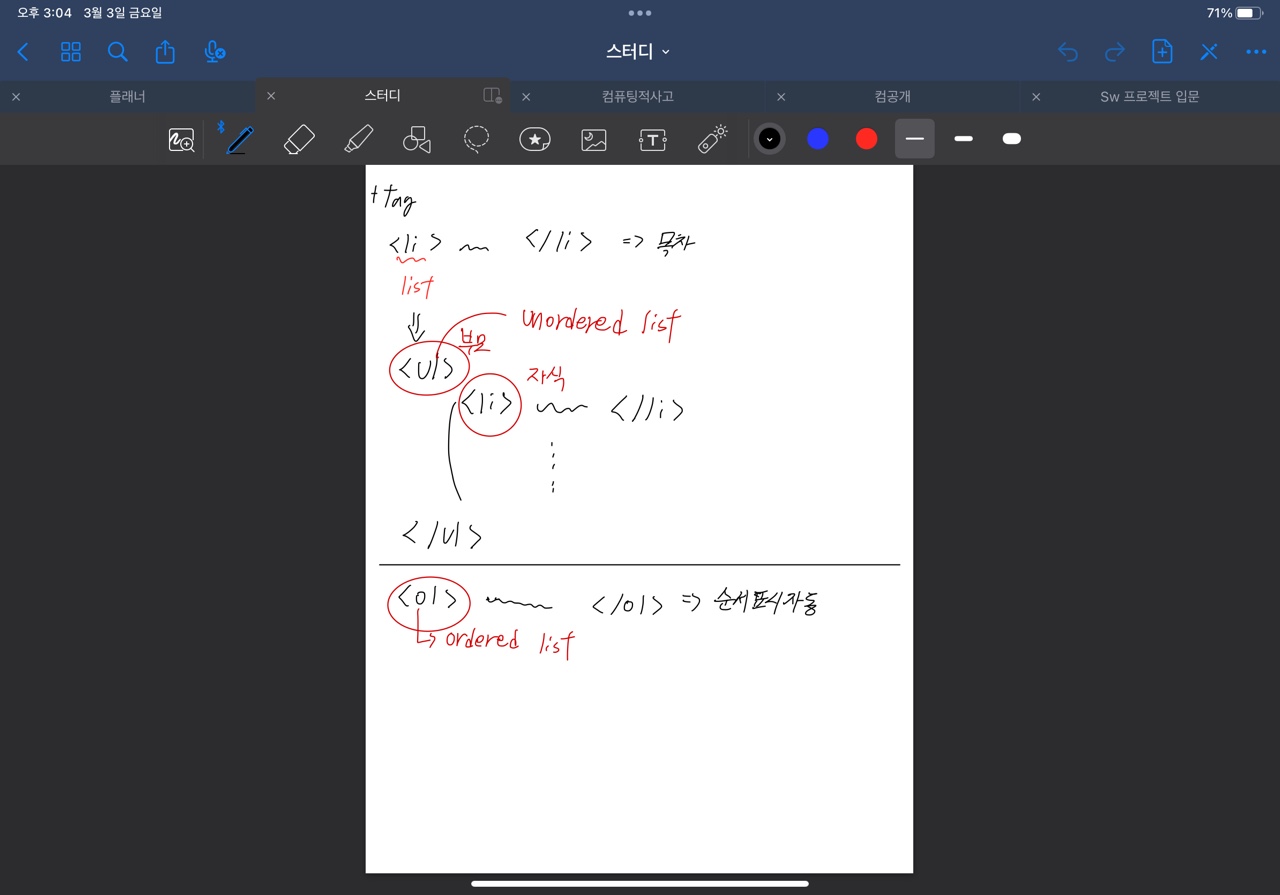 오후 3:04 3월 3일 금요일
71%
스터디
플래너
스터디
컴퓨팅적사고
컴공개
Sw 프로젝트 입문
+ tag
<li> </li> => 목차
list
unordered list
부모
<ul>
자식
<li> </li>
</ul>
<ol> </ol> => 순서표시자동
ordered list